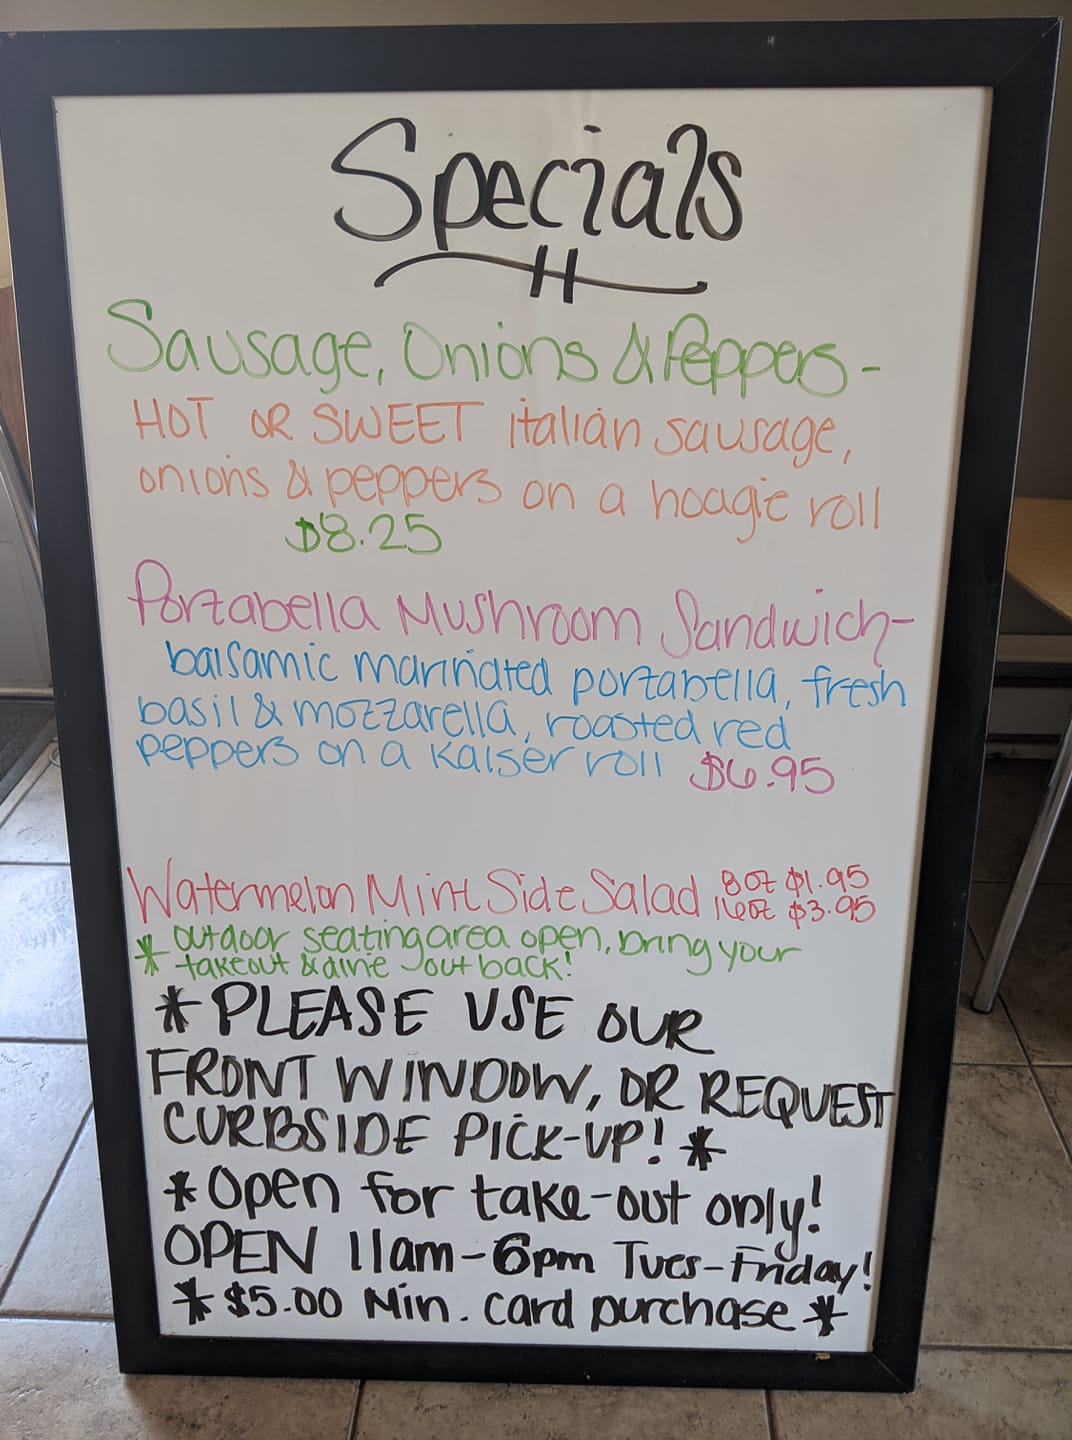 Specials
Sausage, Onions & Peppers-
HOT OR SWEET italian sausage,
onions & peppers on a hoagie roll
$8.25
Portabella Mushroom Sandwich-
balsamic marinated portabella, fresh
basil & mozzarella, roasted red
peppers on a kaiser roll $6.95
Watermelon Mint Side Salad 8oz $1.95
16oz $3.95
* outdoor seating area open, bring your
takeout & dine out back!
*PLEASE USE OUR
FRONT WINDOW, OR REQUEST
CURBSIDE PICK-UP! *
*Open for take-out only!
OPEN 11am-6pm Tues-Friday!
*$5.00 Min. card purchase*